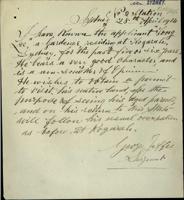 Police Station
Sydney 28th April 1914
I have known the applicant Gong
a Gardener resident of Kogarah,
Sydney, for the past five or six years
He bears a very good character and
is a non-smoker of Opium.
He wishes to obtain a permit
to visit his native land for the
purpose of seeing his aged parents,
and on his return to this State
will follow his usual occupation
as before at Kogarah.
Sergeant